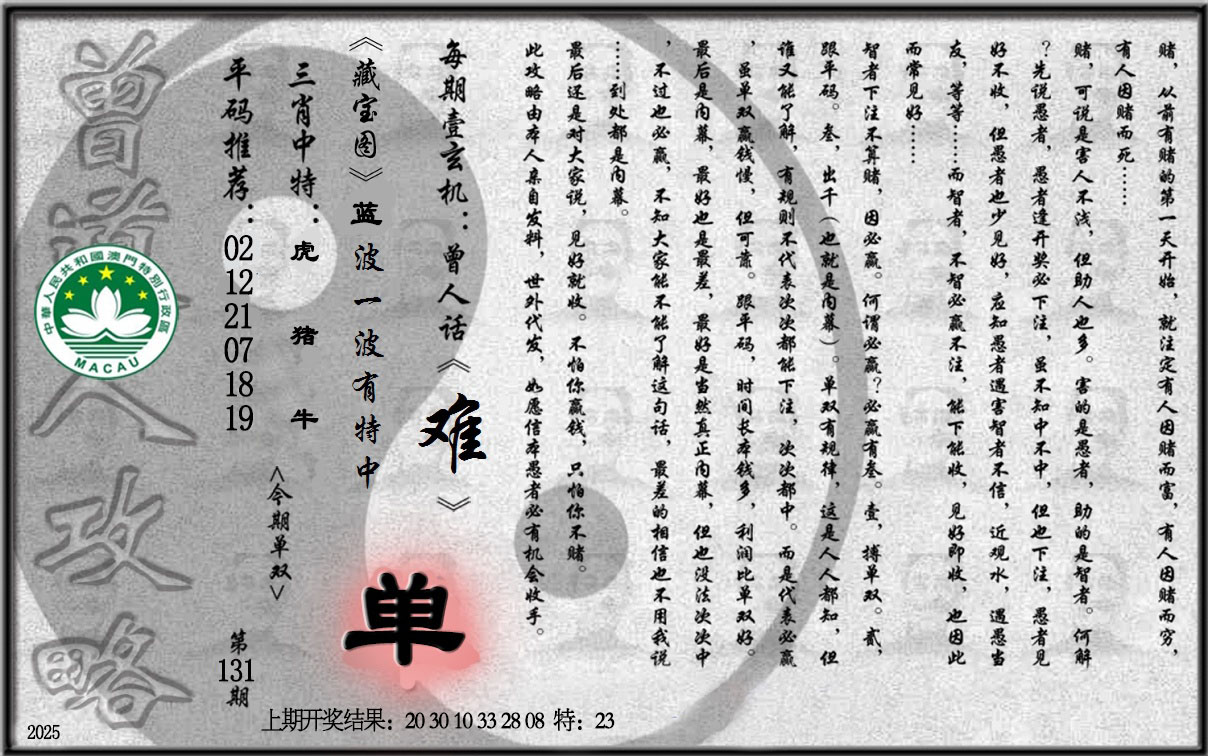 赌，从前有赌的第一天开始，就注定有人因赌而富，有人因赌而穷，
有人因赌而死……
赌，可说是害人不浅，但助人也多。害的是愚者，助的是智者。何解
？先说愚者，愚者逢开奖必下注，虽不知中不中，但也下注，愚者见
好不收，但愚者也少见好，应知愚者遇害智者不信，近观水，遇愚当
友，等等……而智者，不智必赢不注，能下能收，见好即收，也因此
而常见好……
智者下注不算赌，因必赢。何谓必赢？必赢有叁。壹，搏单双。贰，
跟平码。叁，出千（也就是内幕）。单双有规律，这是人人都知，但
谁又能了解，有规则不代表次次都能下注，次次都中。而是代表必赢
，虽单双赢钱慢，但可靠。跟平码，时间长本钱多，利润比单双好。
最后是内幕，最好也是最差，最好是当然真正内幕，但也没法次次中
，不过也必赢，不知大家能不能了解这句话，最差的相信也不用我说
……到处都是内幕。
最后还是对大家说，见好就收。不怕你赢钱，只怕你不赌。
此攻略由本人亲自发料，世外代发，如愿信本愚者必有机会收手。
每期壹玄机：曾人话《难》
《藏宝图》蓝波一波有特中
三肖中特：虎 猪 牛
平码推荐：02 12 21 07 18 19
<今期单双>
单
第131期
曾道人攻略
中華人民共和國澳門特別行政區
MACAU
上期开奖结果：20 30 10 33 28 08 特：23
2025